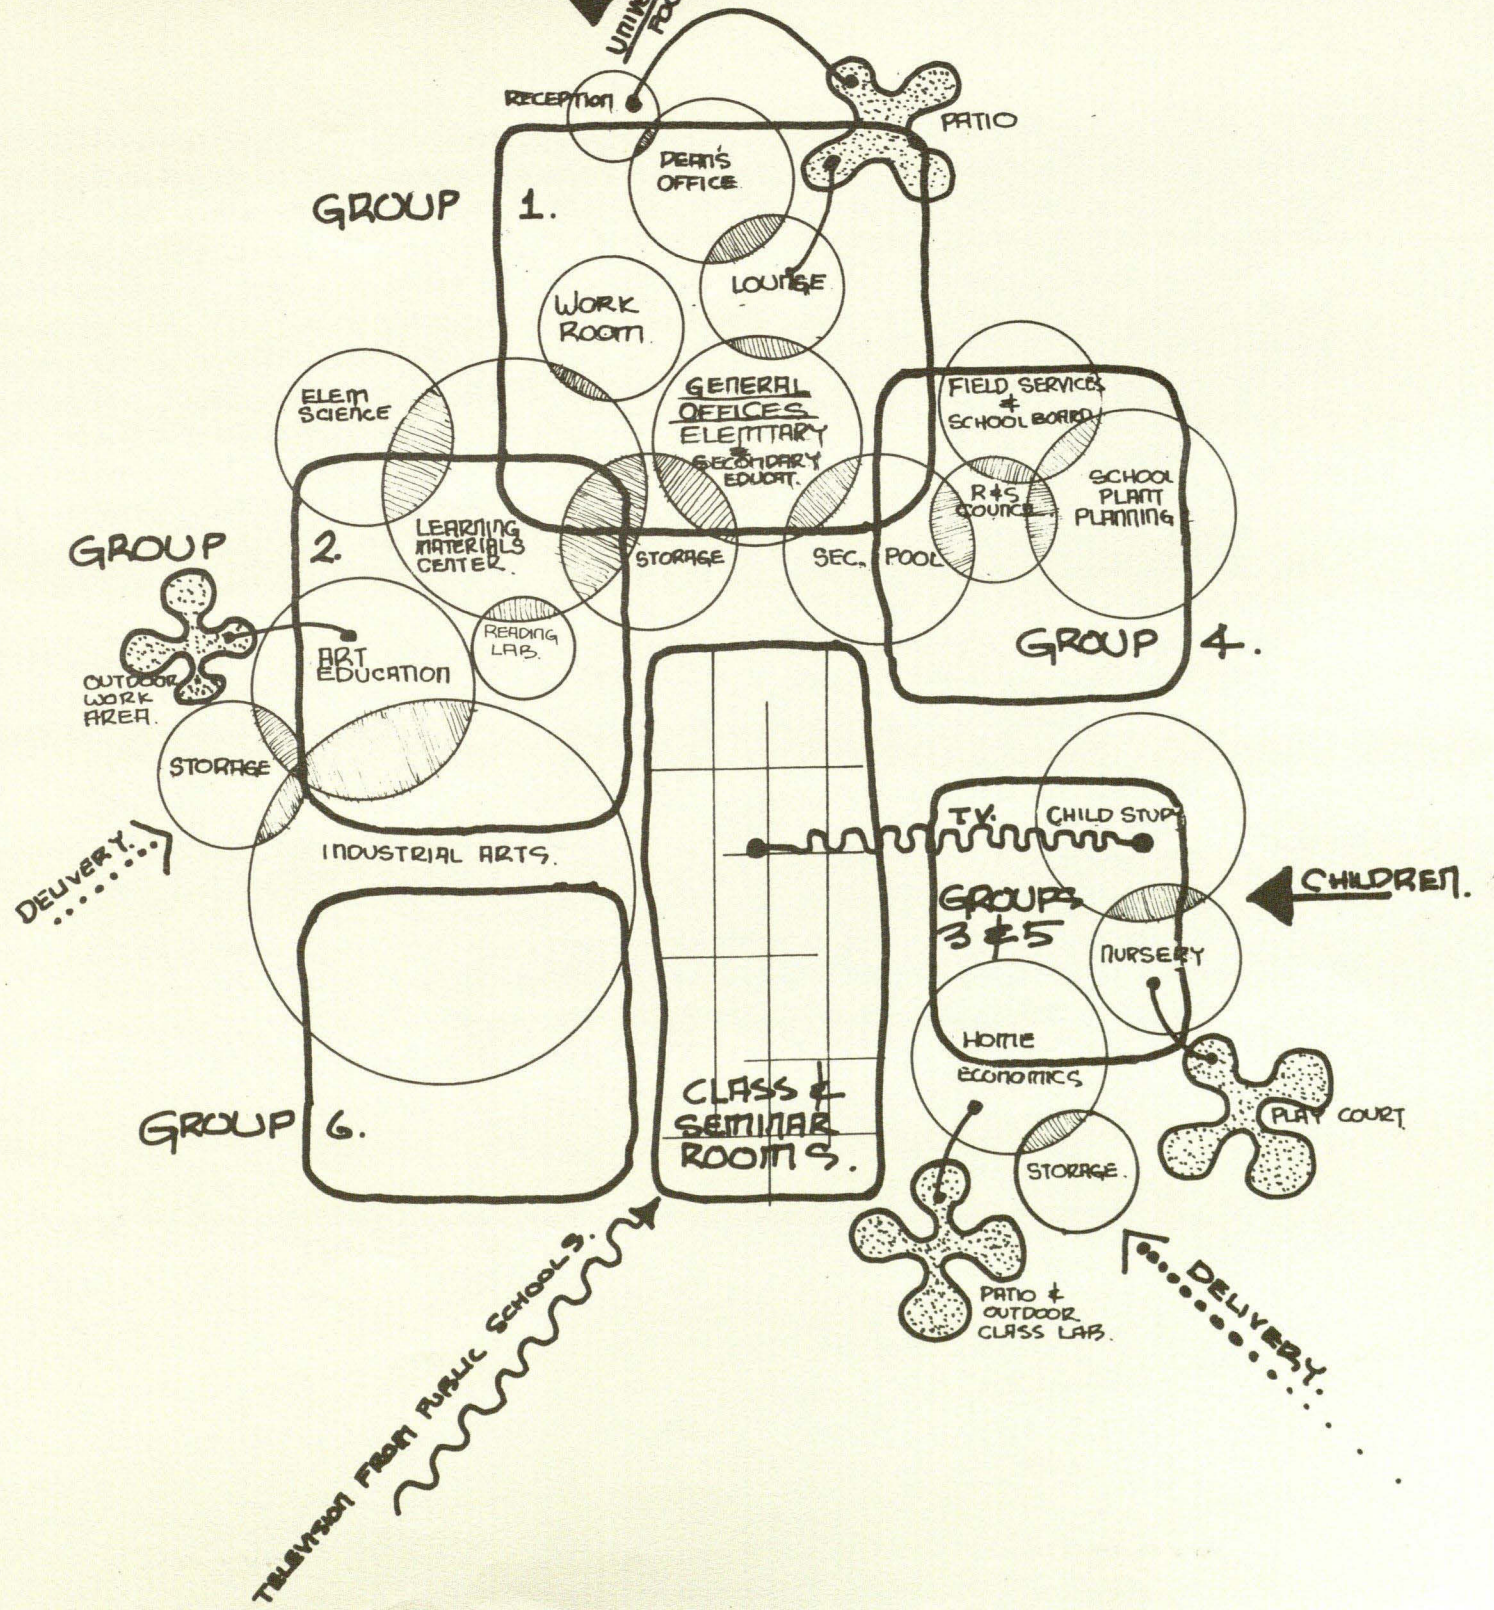 RECEPTION
PATIO
DEAN'S
OFFICE
GROUP 1.
LOUNGE
WORK
ROOM.
ELEM
SCIENCE
GENERAL
OFFICES
ELEMTARY
&
SECONDARY
EDUCAT.
FIELD SERVICES
&
SCHOOL BOARD
R & S
COUNCIL
SCHOOL
PLANT
PLANNING
GROUP 2.
LEARNING
MATERIALS
CENTER.
STORAGE
SEC. POOL
GROUP 4.
READING
LAB.
ART
EDUCATION
OUTDOOR
WORK
AREA.
STORAGE
DELIVERY.
INDUSTRIAL ARTS.
T.V.
CHILD STUDY
CHILDREN.
GROUPS
3 & 5
NURSERY
HOME
ECONOMICS
PLAY COURT
CLASS &
SEMINAR
ROOMS.
GROUP 6.
STORAGE.
PATIO &
OUTDOOR
CLASS LAB.
DELIVERY.
TELEVISION FROM PUBLIC SCHOOLS.